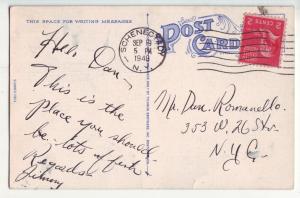 THIS SPACE FOR WRITING MESSAGES
Hello Dan,
This is the
place you should
be. lots of fish
Regards
Johnny
POST CARD
SCHENECTADY
SEP 19
5 PM
1949
N.Y.
2 CENTS 2
Mr. Dan Romanello.
353 W. 26 St.
N.Y.C.